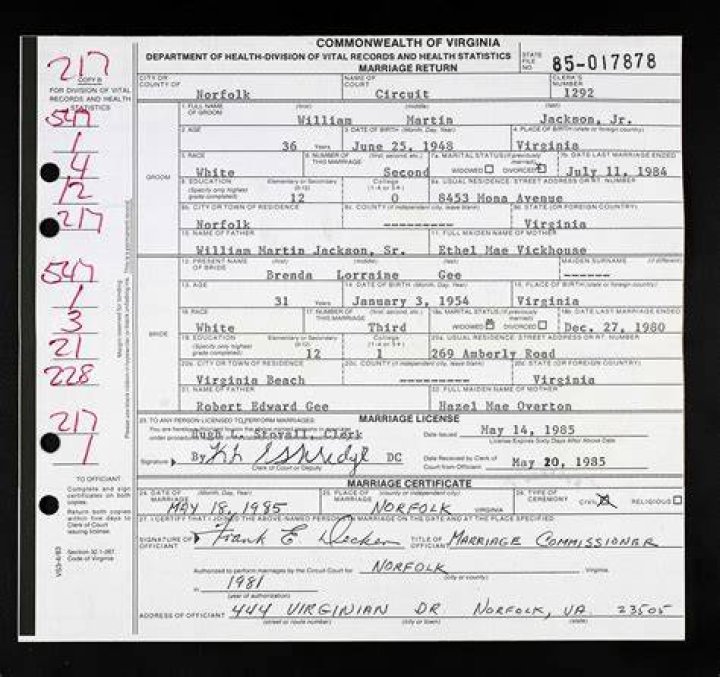 COMMONWEALTH OF VIRGINIA
DEPARTMENT OF HEALTH-DIVISION OF VITAL RECORDS AND HEALTH STATISTICS
MARRIAGE RETURN
STATE FILE NO. 85-017878
217
COPY B
FOR DIVISION OF VITAL
RECORDS AND HEALTH
STATISTICS
547
1
4
12
217
547
1
3
21
228
217
1
TO OFFICIANT
Complete and sign
certificates on both
copies.
Return both copies
within five days to
Clerk of Court
issuing license.
Section 32.1-267
Code of Virginia
VS3-4/83
CITY OR COUNTY OF Norfolk
NAME OF COURT Circuit
CLERK'S NUMBER 1292
GROOM
1. FULL NAME OF GROOM (first) (middle) (last)
William Martin Jackson, Jr.
2. AGE 36 Years
3. DATE OF BIRTH (Month, Day, Year) June 25, 1948
4. PLACE OF BIRTH (state or foreign country) Virginia
5. RACE White
6. NUMBER OF THIS MARRIAGE (first, second, etc.) Second
7a. MARITAL STATUS (if previously married) WIDOWED DIVORCED X
7b. DATE LAST MARRIAGE ENDED July 11, 1984
8. EDUCATION (Specify only highest grade completed) Elementary or Secondary (0-12) 12 College (1-4 or 5+) 0
9a. USUAL RESIDENCE: STREET ADDRESS OR RT. NUMBER
8453 Mona Avenue
9b. CITY OR TOWN OF RESIDENCE Norfolk
9c. COUNTY (if independent city, leave blank) ---------
9d. STATE (OR FOREIGN COUNTRY) Virginia
10. NAME OF FATHER William Martin Jackson, Sr.
11. FULL MAIDEN NAME OF MOTHER Ethel Mae Vickhouse
BRIDE
12. PRESENT NAME OF BRIDE (first) (middle) (last)
Brenda Lorraine Gee
MAIDEN SURNAME (if different) ------
13. AGE 31 Years
14. DATE OF BIRTH (Month, Day, Year) January 3, 1954
15. PLACE OF BIRTH (state or foreign country) Virginia
16. RACE White
17. NUMBER OF THIS MARRIAGE (first, second, etc.) Third
18a. MARITAL STATUS (if previously married) WIDOWED X DIVORCED
18b. DATE LAST MARRIAGE ENDED Dec. 27, 1980
19. EDUCATION (Specify only highest grade completed) Elementary or Secondary (0-12) 12 College (1-4 or 5+) 1
20a. USUAL RESIDENCE: STREET ADDRESS OR RT. NUMBER
269 Amberly Road
20b. CITY OR TOWN OF RESIDENCE Virginia Beach
20c. COUNTY (if independent city, leave blank) ---------
20d. STATE (OR FOREIGN COUNTRY) Virginia
21. NAME OF FATHER Robert Edward Gee
22. FULL MAIDEN NAME OF MOTHER Hazel Mae Overton
MARRIAGE LICENSE
23. TO ANY PERSON LICENSED TO PERFORM MARRIAGES:
Hugh L. Stovall, Clerk
Signature By DC
Clerk of Court or Deputy
Date Issued May 14, 1985
License Expires Sixty Days After Above Date
Date Received by Clerk of Court from Officiant: May 20, 1985
MARRIAGE CERTIFICATE
24. DATE OF MARRIAGE (Month, Day, Year) MAY 18, 1985
25. PLACE OF MARRIAGE (county or independent city) NORFOLK VIRGINIA
26. TYPE OF CEREMONY CIVIL X RELIGIOUS
27. I CERTIFY THAT I JOINED THE ABOVE-NAMED PERSONS IN MARRIAGE ON THE DATE AND AT THE PLACE SPECIFIED.
SIGNATURE OF OFFICIANT Frank E Decker
TITLE OF OFFICIANT MARRIAGE COMMISSIONER
Authorized to perform marriages by the Circuit Court for NORFOLK Virginia
(city or county)
in 1981
(year of authorization)
ADDRESS OF OFFICIANT 444 VIRGINIAN DR NORFOLK, VA. 23505
(street or route number) (city or town) (state)